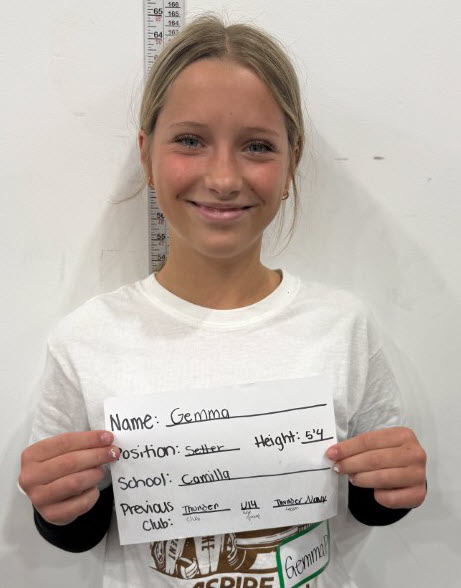 65
166
165
64
164
163
56
55
54
Name: Gemma
Position: Setter Height: 5'4
School: Camilla
Previous Club: Thunder U14 Thunder Navy
Club Age Group Team
Gemma
ASPIRE